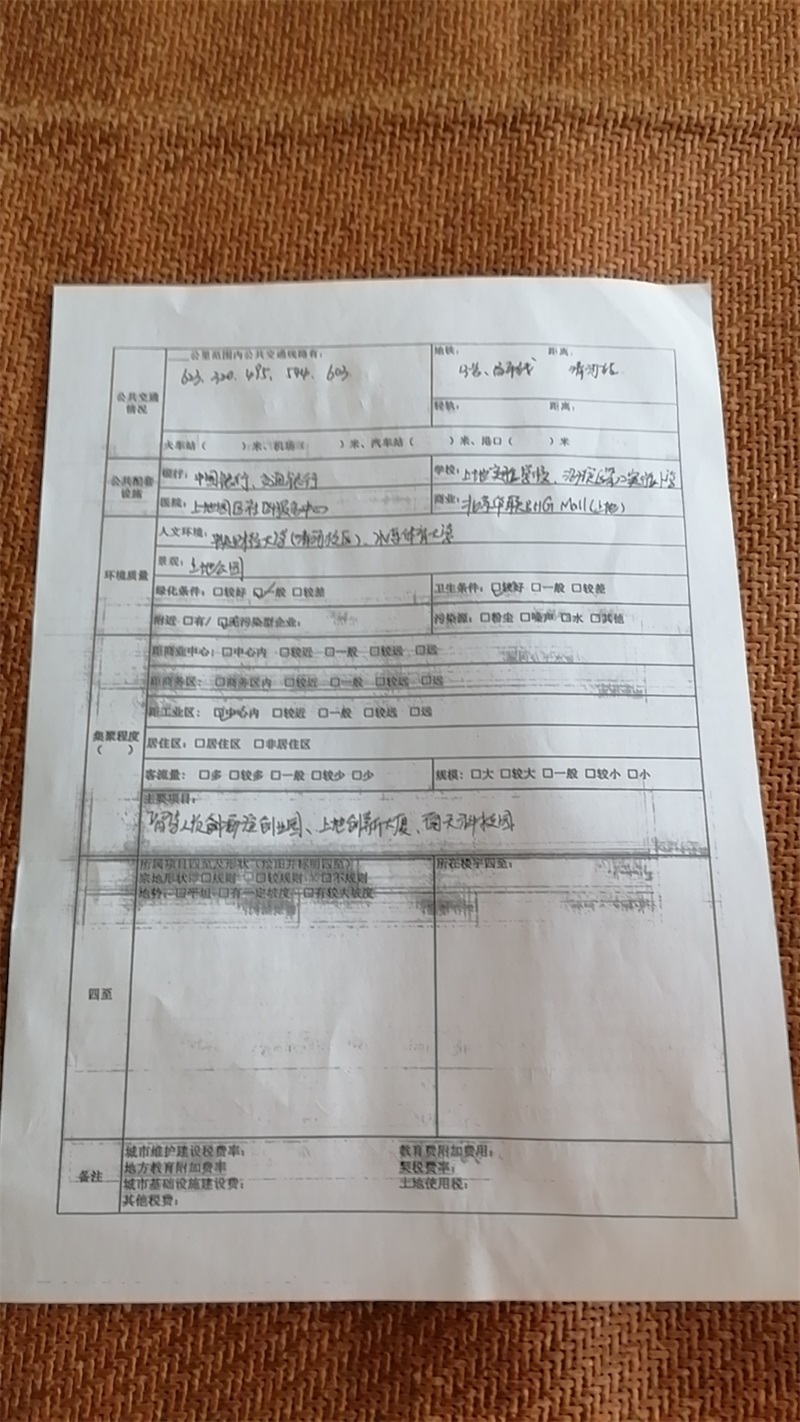 公共交通情况
公里范围内公共交通线路有：
623、320、495、594、603
地铁： 距离：
13号、昌平线 清河站
轻轨： 距离：
火车站（ ）米、机场（ ）米、汽车站（ ）米、港口（ ）米
公共配套设施
银行：中国银行、交通银行
学校：上地实验学校、
医院：上地园区社区服务中心
商业：北京华联BHG Mall(上地)
环境质量
人文环境：中央财经大学(清河校区)、北京体育大学
景观：上地公园
绿化条件：□较好 ☑一般 □较差
卫生条件：☑较好 □一般 □较差
附近 □有/ ☑无污染型企业：
污染源：□粉尘 □噪声 □水 □其他
集聚程度（ ）
距商业中心：□中心内 □较近 □一般 □较远 □远
距商务区：□商务区内 □较近 □一般 □较远 □远
距工业区：☑中心内 □较近 □一般 □较远 □远
居住区：□居住区 □非居住区
客流量：□多 □较多 □一般 □较少 □少
规模：□大 □较大 □一般 □较小 □小
主要项目：
留学人员创业园、上地创新大厦、科技园
四至
所属项目四至及形状（绘图并标明四至）
宗地形状：□规则 □较规则 □不规则
地势：□平坦 □有一定坡度 □有较大坡度
所在楼宇四至：
备注
城市维护建设税费率： 教育费附加费用：
地方教育附加费率 契税费率：
城市基础设施建设费： 土地使用税：
其他税费：